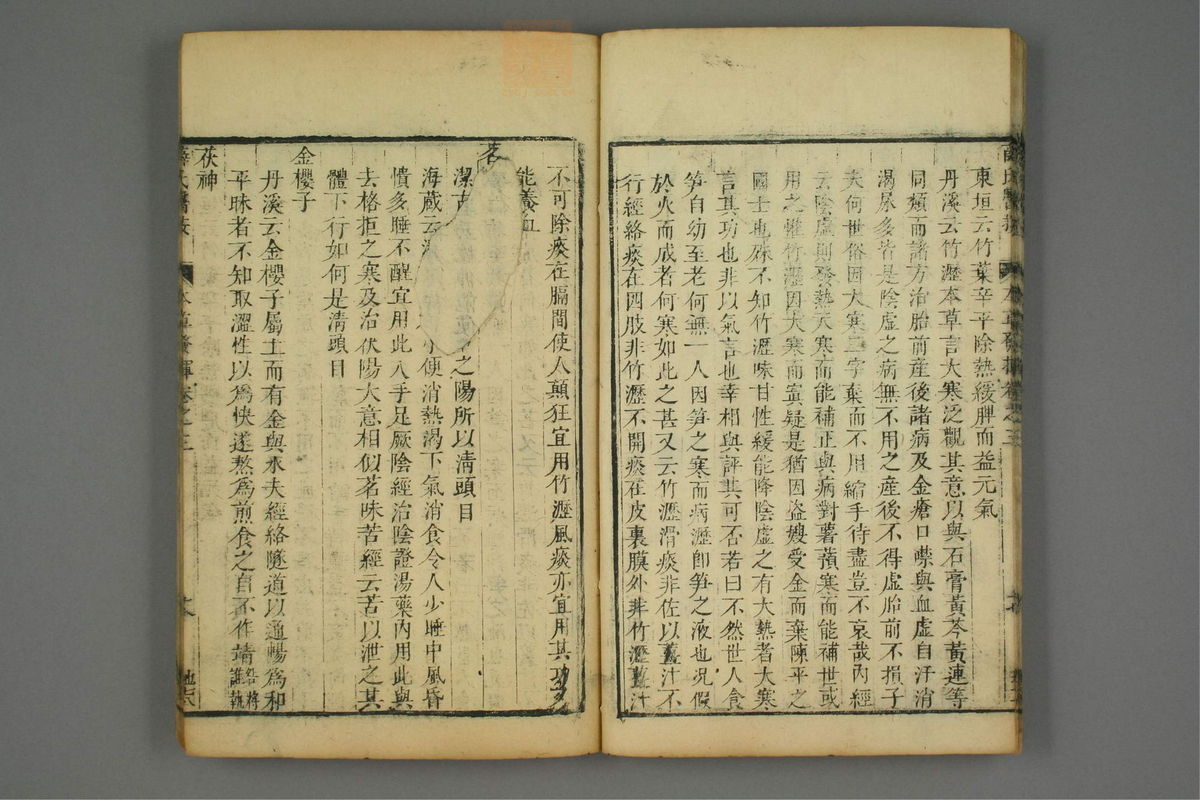 東垣云竹葉辛平除熱緩脾而益元氣
丹溪云竹瀝本草言大寒泛觀其意以與石膏黃芩黃連等
同類而諸方治胎前產後諸病及金瘡口噤與血虛自汗消
渴尿多皆是陰虛之病無不用之產後不得虛胎前不損子
夫何世俗因大寒二字棄而不用縮手待盡豈不哀哉內經
云陰虛則發熱大寒而能補正與病對薯蕷寒而能補世或
用之惟竹瀝因大寒而寘疑是猶因盜嫂受金而棄陳平之
國士也殊不知竹瀝味甘性緩能降陰虛之有大熱者大寒
言其功也非以氣言也幸相與評其可否若曰不然世人食
笋自幼至老何無一人因笋之寒而病瀝即笋之液也況假
於火而成者何寒如此之甚又云竹瀝滑痰非佐以薑汁不
行經絡痰在四肢非竹瀝不開痰在皮裏膜外非竹瀝薑汁
不可除痰在膈間使人顛狂宜用竹瀝風痰亦宜用其功多
能養血
茗
潔古 之陽所以清頭目
海藏云 小便消熱渴下氣消食令人少睡中風昏
憒多睡不醒宜用此入手足厥陰經治陰證湯藥內用此與
去格拒之寒及治伏陽大意相似茗味苦經云苦以泄之其
體下行如何是清頭目
金櫻子
丹溪云金櫻子屬土而有金與水夫經絡隧道以通暢為和
平昧者不知取澀性以為快遂熬為煎食之自不作靖
茯神
本草發揮卷之三